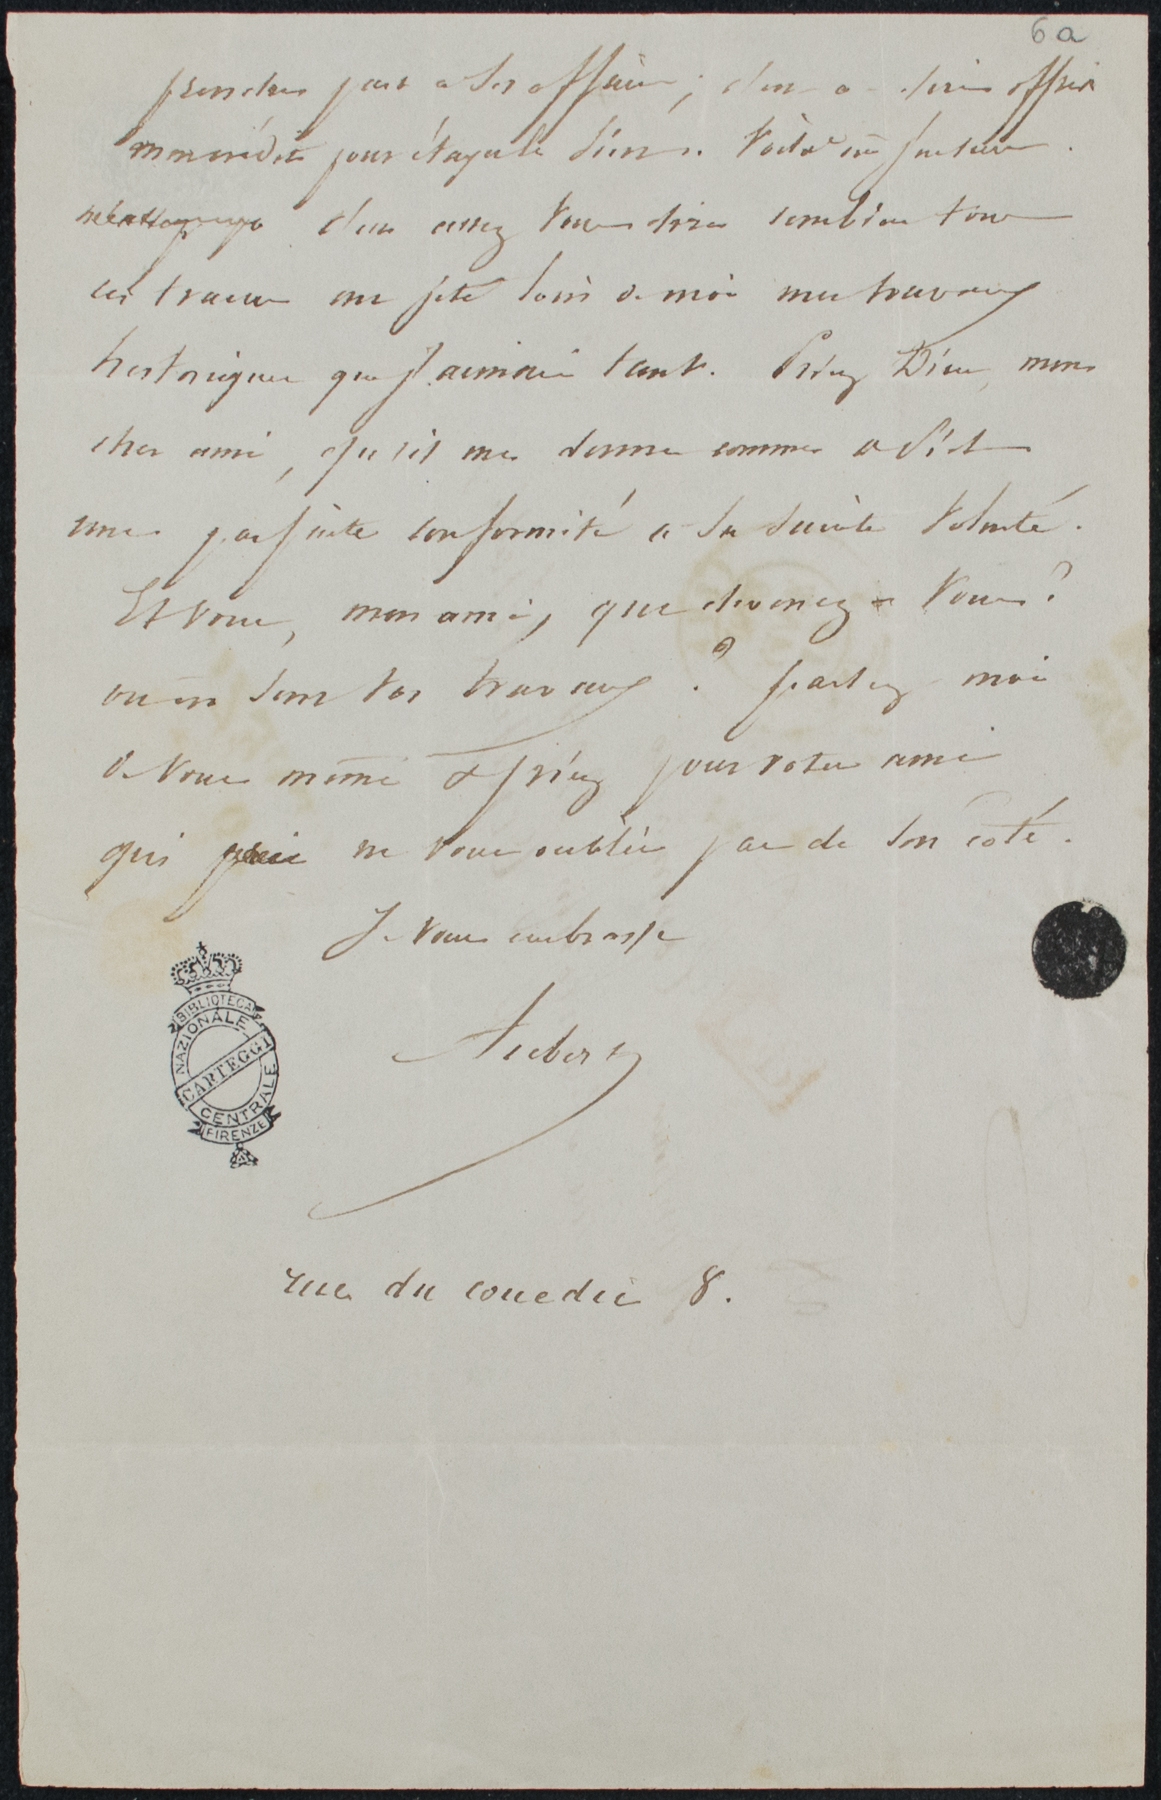 6a
prendre part à ses affaires ; c'en à dire offrir
mon crédit pour étayer le sien. Voilà où j'en suis.
c'en assez vous dire combien tous
ces tracas ont jeté loin de moi mes travaux
historiques que j'aimais tant. Priez Dieu, mon
cher ami, qu'il me donne comme à
une parfaite conformité à sa sainte Volonté.
Et vous, mon ami, que devenez-vous ?
où en sont vos travaux ? parlez moi
de vous même & priez pour votre ami
qui ne vous oublie pas de son côté.
Je vous embrasse
Aubert
BIBLIOTECA
NAZIONALE
CARTEGGI
CENTRALE
FIRENZE
rue du couedic 8.